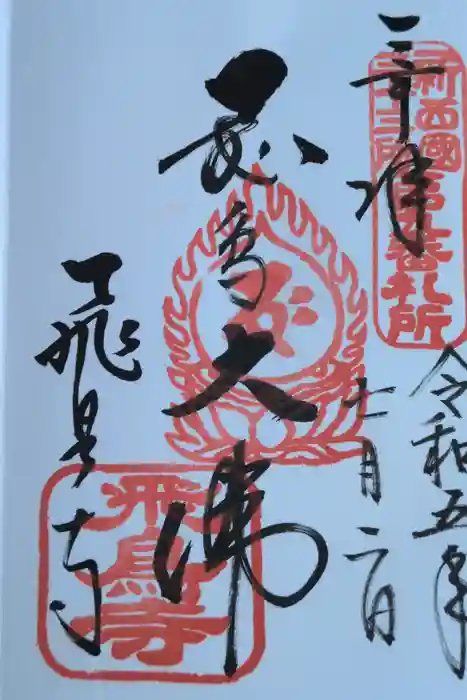 奉拝
令和五年
七月二日
飛鳥大佛
飛鳥寺
新西國
三十三所
第九番札所
飛鳥寺